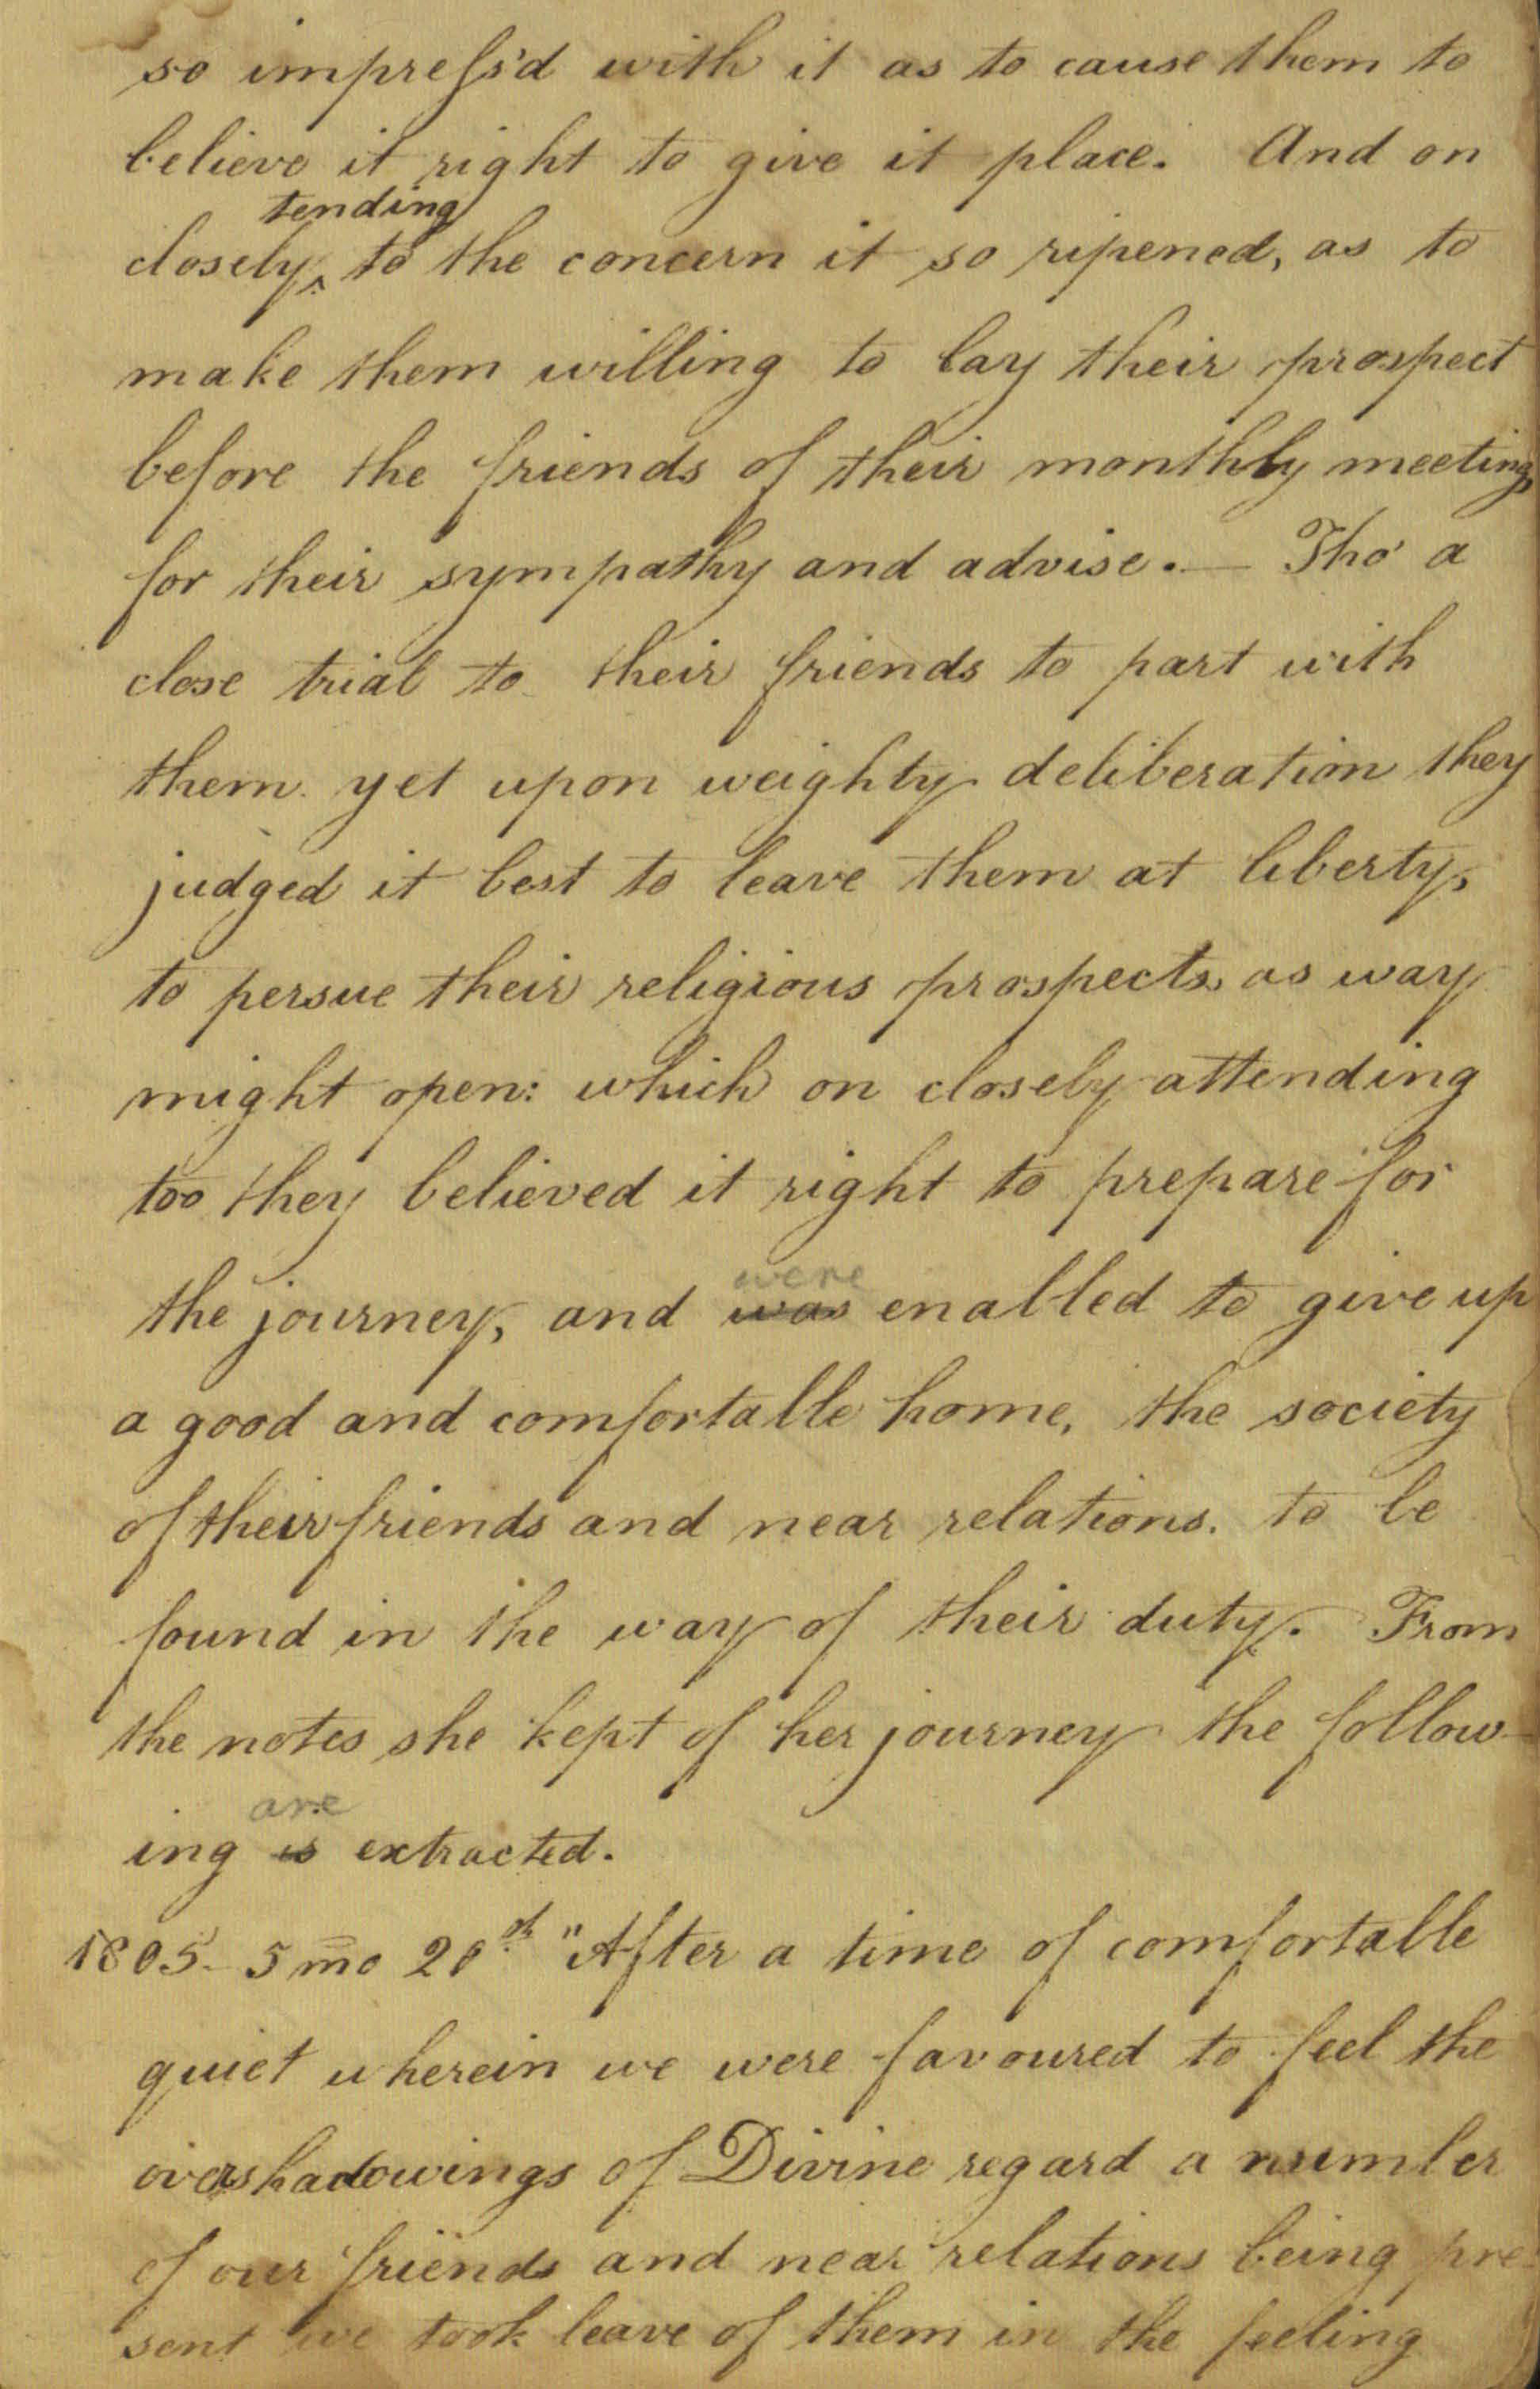 so impress'd with it as to cause them to
believe it right to give it place. And on
tending
closely ^ to the concern it so ripened, as to
make them willing to lay their prospect
before the friends of their monthly meeting,
for their sympathy and advise.— Tho' a
close trial to their friends to part with
them. yet upon weighty deliberation they
judged it best to leave them at liberty,
to persue their religious prospects, as way
might open: which on closely attending
too they believed it right to prepare for
were
the journey, and was enabled to give up
a good and comfortable home, the society
of their friends and near relations. to be
found in the way of their duty. From
the notes she kept of her journey the follow-
are
ing is extracted.
1805- 5 mo 20th "After a time of comfortable
quiet wherein we were favoured to feel the
overshadowings of Divine regard a number
of our friends and near relations being pre
sent we took leave of them in the feeling